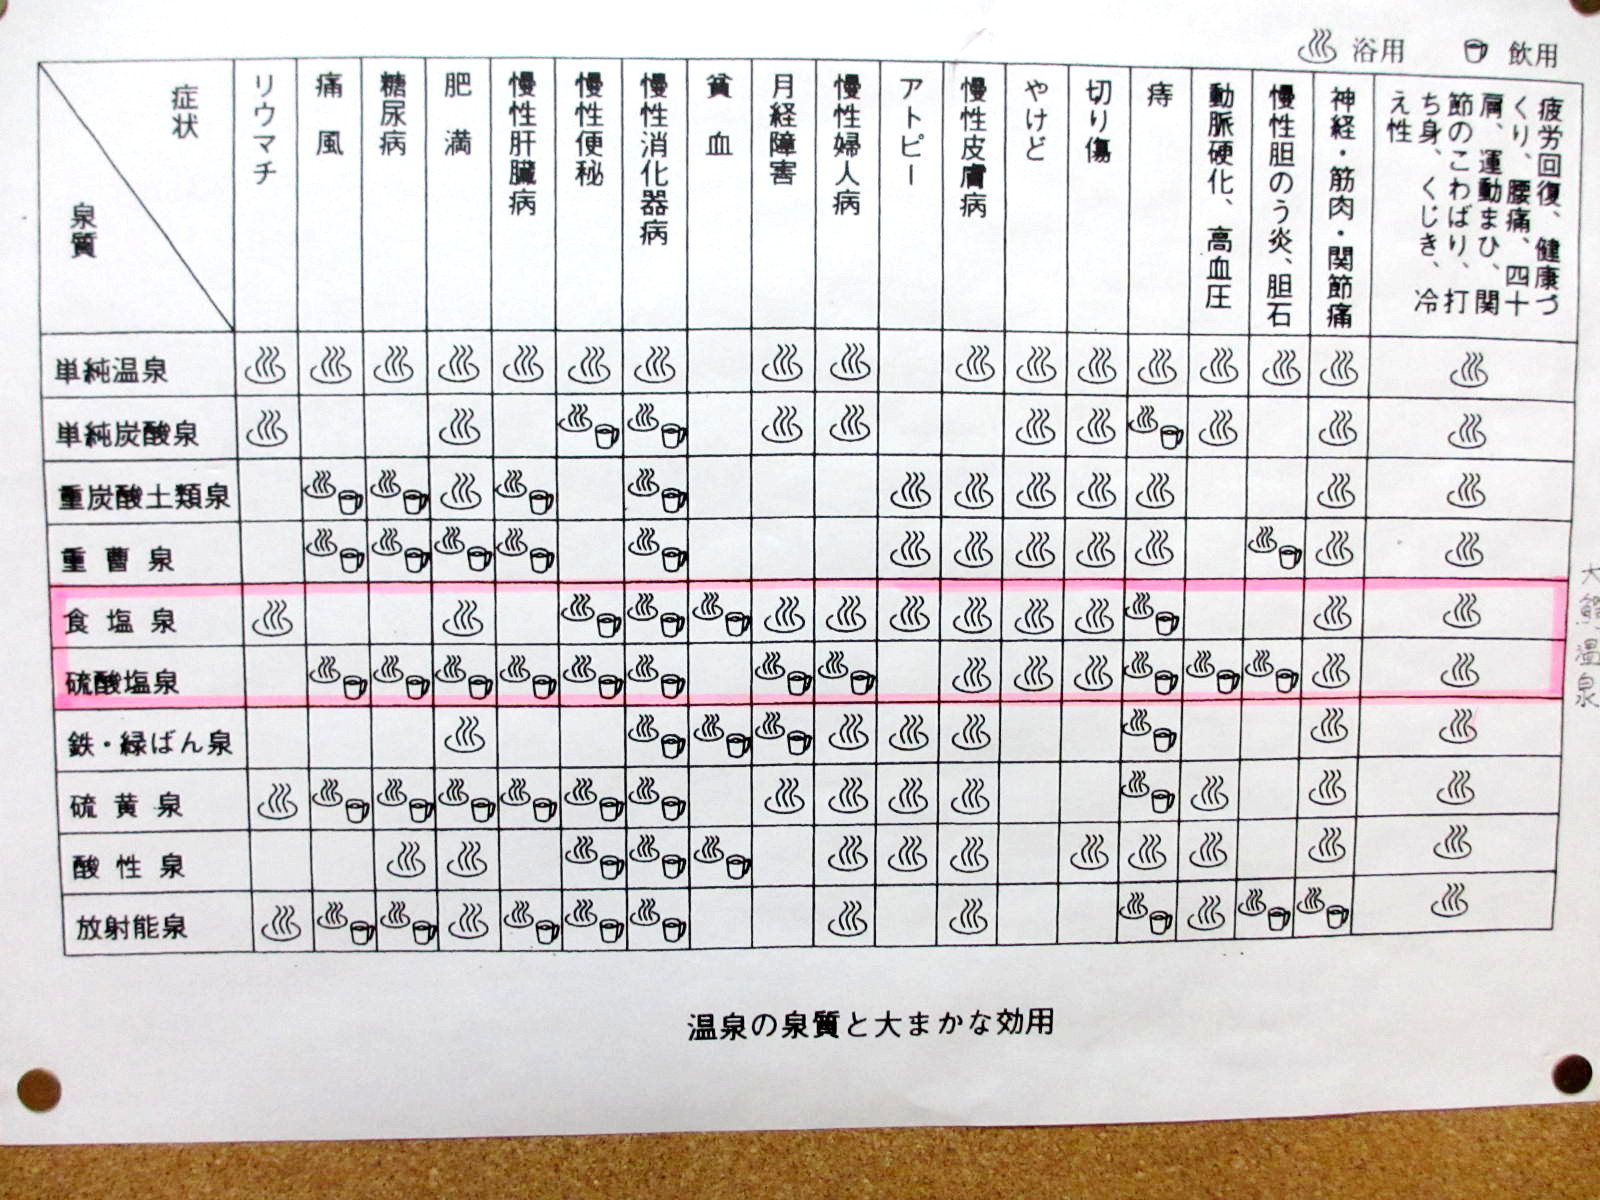 浴用 飲用
症状
泉質
リウマチ
痛風
糖尿病
肥満
慢性肝臓病
慢性便秘
慢性消化器病
貧血
月経障害
慢性婦人病
アトピー
慢性皮膚病
やけど
切り傷
痔
動脈硬化、高血圧
慢性胆のう炎、胆石
神経・筋肉・関節痛
疲労回復、健康づ
くり、腰痛、四十
肩、運動まひ、関
節のこわばり、打
ち身、くじき、冷
え性
単純温泉
単純炭酸泉
重炭酸土類泉
重曹泉
食塩泉
硫酸塩泉
鉄・緑ばん泉
硫黄泉
酸性泉
放射能泉
大鰐温泉
温泉の泉質と大まかな効用